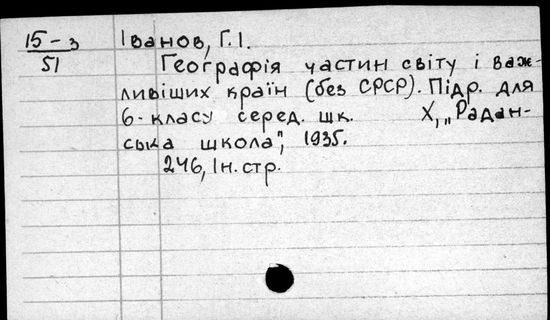 15-з Іванов, Г.І.
51 Географія частин світу і важ-
ливіших країн (без СРСР). Підр. для
6-класу серед. шк. Х, „Радан-
ська школа", 1935.
246, Ін.стр.